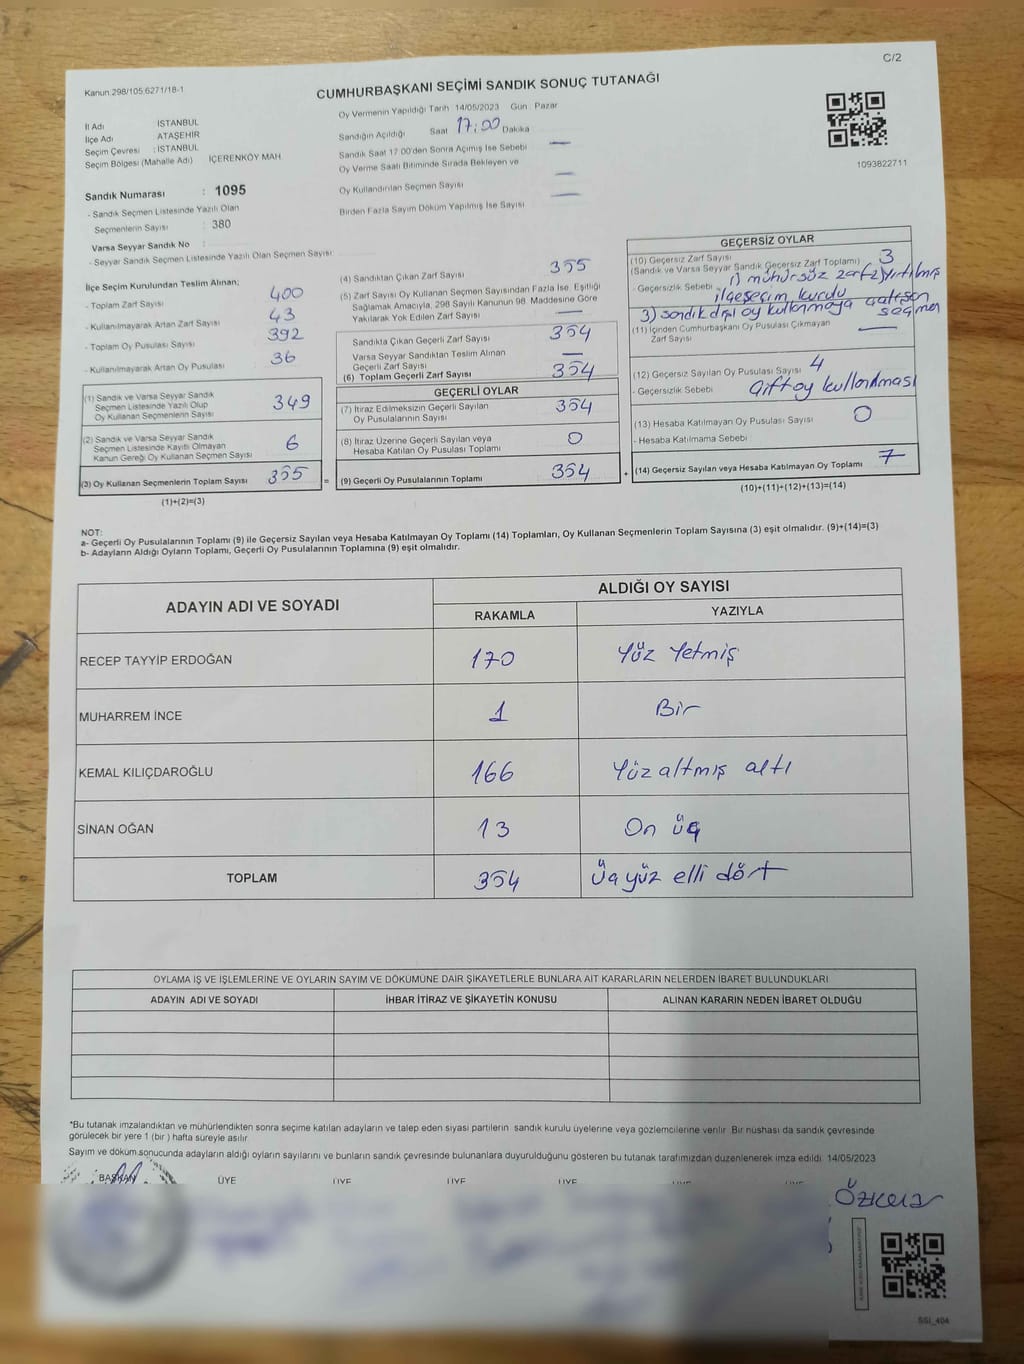 C/2
Kanun:298/105,6271/18-1
CUMHURBAŞKANI SEÇİMİ SANDIK SONUÇ TUTANAĞI
1093822711
İl Adı : İSTANBUL
İlçe Adı : ATAŞEHİR
Seçim Çevresi : İSTANBUL
Seçim Bölgesi (Mahalle Adı) İÇERENKÖY MAH
Sandık Numarası : 1095
- Sandık Seçmen Listesinde Yazılı Olan
Seçmenlerin Sayısı : 380
Varsa Seyyar Sandık No :
- Seyyar Sandık Seçmen Listesinde Yazılı Olan Seçmen Sayısı:
Oy Vermenin Yapıldığı Tarih 14/05/2023 Gün : Pazar
Sandığın Açıldığı Saat 17:00 Dakika
Sandık Saat 17.00'den Sonra Açımış İse Sebebi —
Oy Verme Saati Bitiminde Sırada Bekleyen ve
Oy Kullandırılan Seçmen Sayısı —
Birden Fazla Sayım Döküm Yapılmış İse Sayısı —
İlçe Seçim Kurulundan Teslim Alınan;
- Toplam Zarf Sayısı 400
- Kullanılmayarak Artan Zarf Sayısı 43
- Toplam Oy Pusulası Sayısı 392
- Kullanılmayarak Artan Oy Pusulası 36
(1) Sandık ve Varsa Seyyar Sandık
Seçmen Listesinde Yazılı Olup
Oy Kullanan Seçmenlerin Sayısı 349
(2) Sandık ve Varsa Seyyar Sandık
Seçmen Listesinde Kayıtlı Olmayan
Kanun Gereği Oy Kullanan Seçmen Sayısı 6
(3) Oy Kullanan Seçmenlerin Toplam Sayısı 355 =
(1)+(2)=(3)
(4) Sandıktan Çıkan Zarf Sayısı 355
(5) Zarf Sayısı Oy Kullanan Seçmen Sayısından Fazla İse, Eşitliği
Sağlamak Amacıyla, 298 Sayılı Kanunun 98. Maddesine Göre
Yakılarak Yok Edilen Zarf Sayısı —
Sandıkta Çıkan Geçerli Zarf Sayısı 354
Varsa Seyyar Sandıktan Teslim Alınan
Geçerli Zarf Sayısı —
(6) Toplam Geçerli Zarf Sayısı 354
GEÇERLİ OYLAR
(7) İtiraz Edilmeksizin Geçerli Sayılan
Oy Pusulalarının Sayısı 354
(8) İtiraz Üzerine Geçerli Sayılan veya
Hesaba Katılan Oy Pusulası Toplamı 0
(9) Geçerli Oy Pusulalarının Toplamı 354 +
GEÇERSİZ OYLAR
(10) Geçersiz Zarf Sayısı 3
(Sandık ve Varsa Seyyar Sandık Geçersiz Zarf Toplamı)
- Geçersizlik Sebebi 1) mühürsüz zarf 2) yırtılmış
ilçe seçim kurulu
3) sandık dışı oy kullanmaya çalışan seçmen
(11) İçinden Cumhurbaşkanı Oy Pusulası Çıkmayan
Zarf Sayısı —
(12) Geçersiz Sayılan Oy Pusulası Sayısı 4
- Geçersizlik Sebebi Çift oy kullanılması
(13) Hesaba Katılmayan Oy Pusulası Sayısı 0
- Hesaba Katılmama Sebebi
(14) Geçersiz Sayılan veya Hesaba Katılmayan Oy Toplamı 7
(10)+(11)+(12)+(13)=(14)
NOT:
a- Geçerli Oy Pusulalarının Toplamı (9) ile Geçersiz Sayılan veya Hesaba Katılmayan Oy Toplamı (14) Toplamları, Oy Kullanan Seçmenlerin Toplam Sayısına (3) eşit olmalıdır. (9)+(14)=(3)
b- Adayların Aldığı Oyların Toplamı, Geçerli Oy Pusulalarının Toplamına (9) eşit olmalıdır.
ADAYIN ADI VE SOYADI ALDIĞI OY SAYISI
RAKAMLA YAZIYLA
RECEP TAYYİP ERDOĞAN 170 Yüz Yetmiş
MUHARREM İNCE 1 Bir
KEMAL KILIÇDAROĞLU 166 Yüz altmış altı
SİNAN OĞAN 13 On üç
TOPLAM 354 Üçyüz elli dört
OYLAMA İŞ VE İŞLEMLERİNE VE OYLARIN SAYIM VE DÖKÜMÜNE DAİR ŞİKAYETLERLE BUNLARA AİT KARARLARIN NELERDEN İBARET BULUNDUKLARI
ADAYIN ADI VE SOYADI İHBAR İTİRAZ VE ŞİKAYETİN KONUSU ALINAN KARARIN NEDEN İBARET OLDUĞU
*Bu tutanak imzalandıktan ve mühürlendikten sonra seçime katılan adayların ve talep eden siyasi partilerin sandık kurulu üyelerine veya gözlemcilerine verilir. Bir nüshası da sandık çevresinde
görülecek bir yere 1 (bir ) hafta süreyle asılır.
Sayım ve döküm sonucunda adayların aldığı oyların sayılarını ve bunların sandık çevresinde bulunanlara duyurulduğunu gösteren bu tutanak tarafımızdan düzenlenerek imza edildi. 14/05/2023
BAŞKAN ÜYE ÜYE ÜYE ÜYE
SSI_404